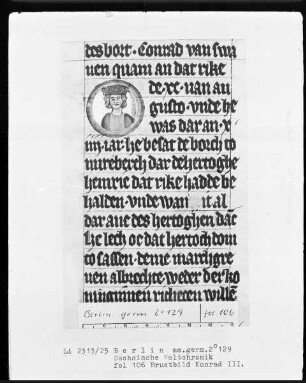 des bort. Conrad van swa
uen quam an dat rike
de xc. uan au
gusto. unde he
was dar an. x
iiij. iar. he besat de borch to
nurebercħ dar de hertoghe
heinric dat rike hadde be
halden. unde wan it al
dar ane des hertoghen danc
he lech oc dat hertochdom
to sassen. deme marchgre
uen albrechte weder der ko
ninginnen richeczen willen
Berlin germ 2º 129 fol 106
LA 2313/25 Berlin ms.germ.2º 129
Sächsische Weltchronik
fol 106 Brustbild Konrad III.